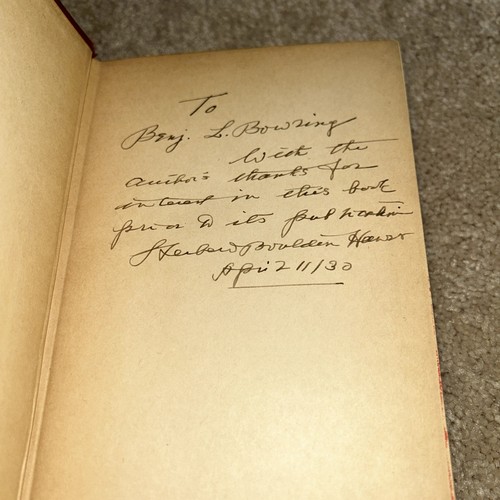 To
Benj. L. Bowring
With the
author's thanks for
interest in this book
prior to its publication
Herbert Boulden Hawes
April 11/30